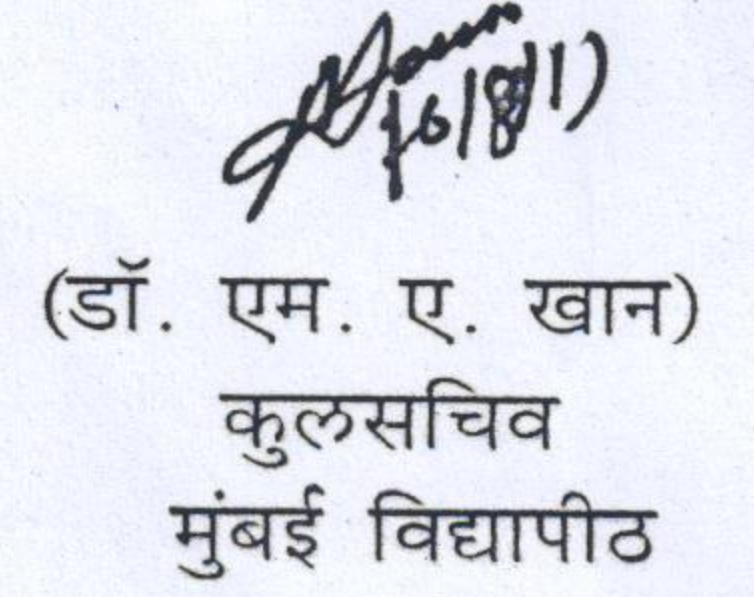 (डॉ. एम. ए. खान)
कुलसचिव
मुंबई विद्यापीठ